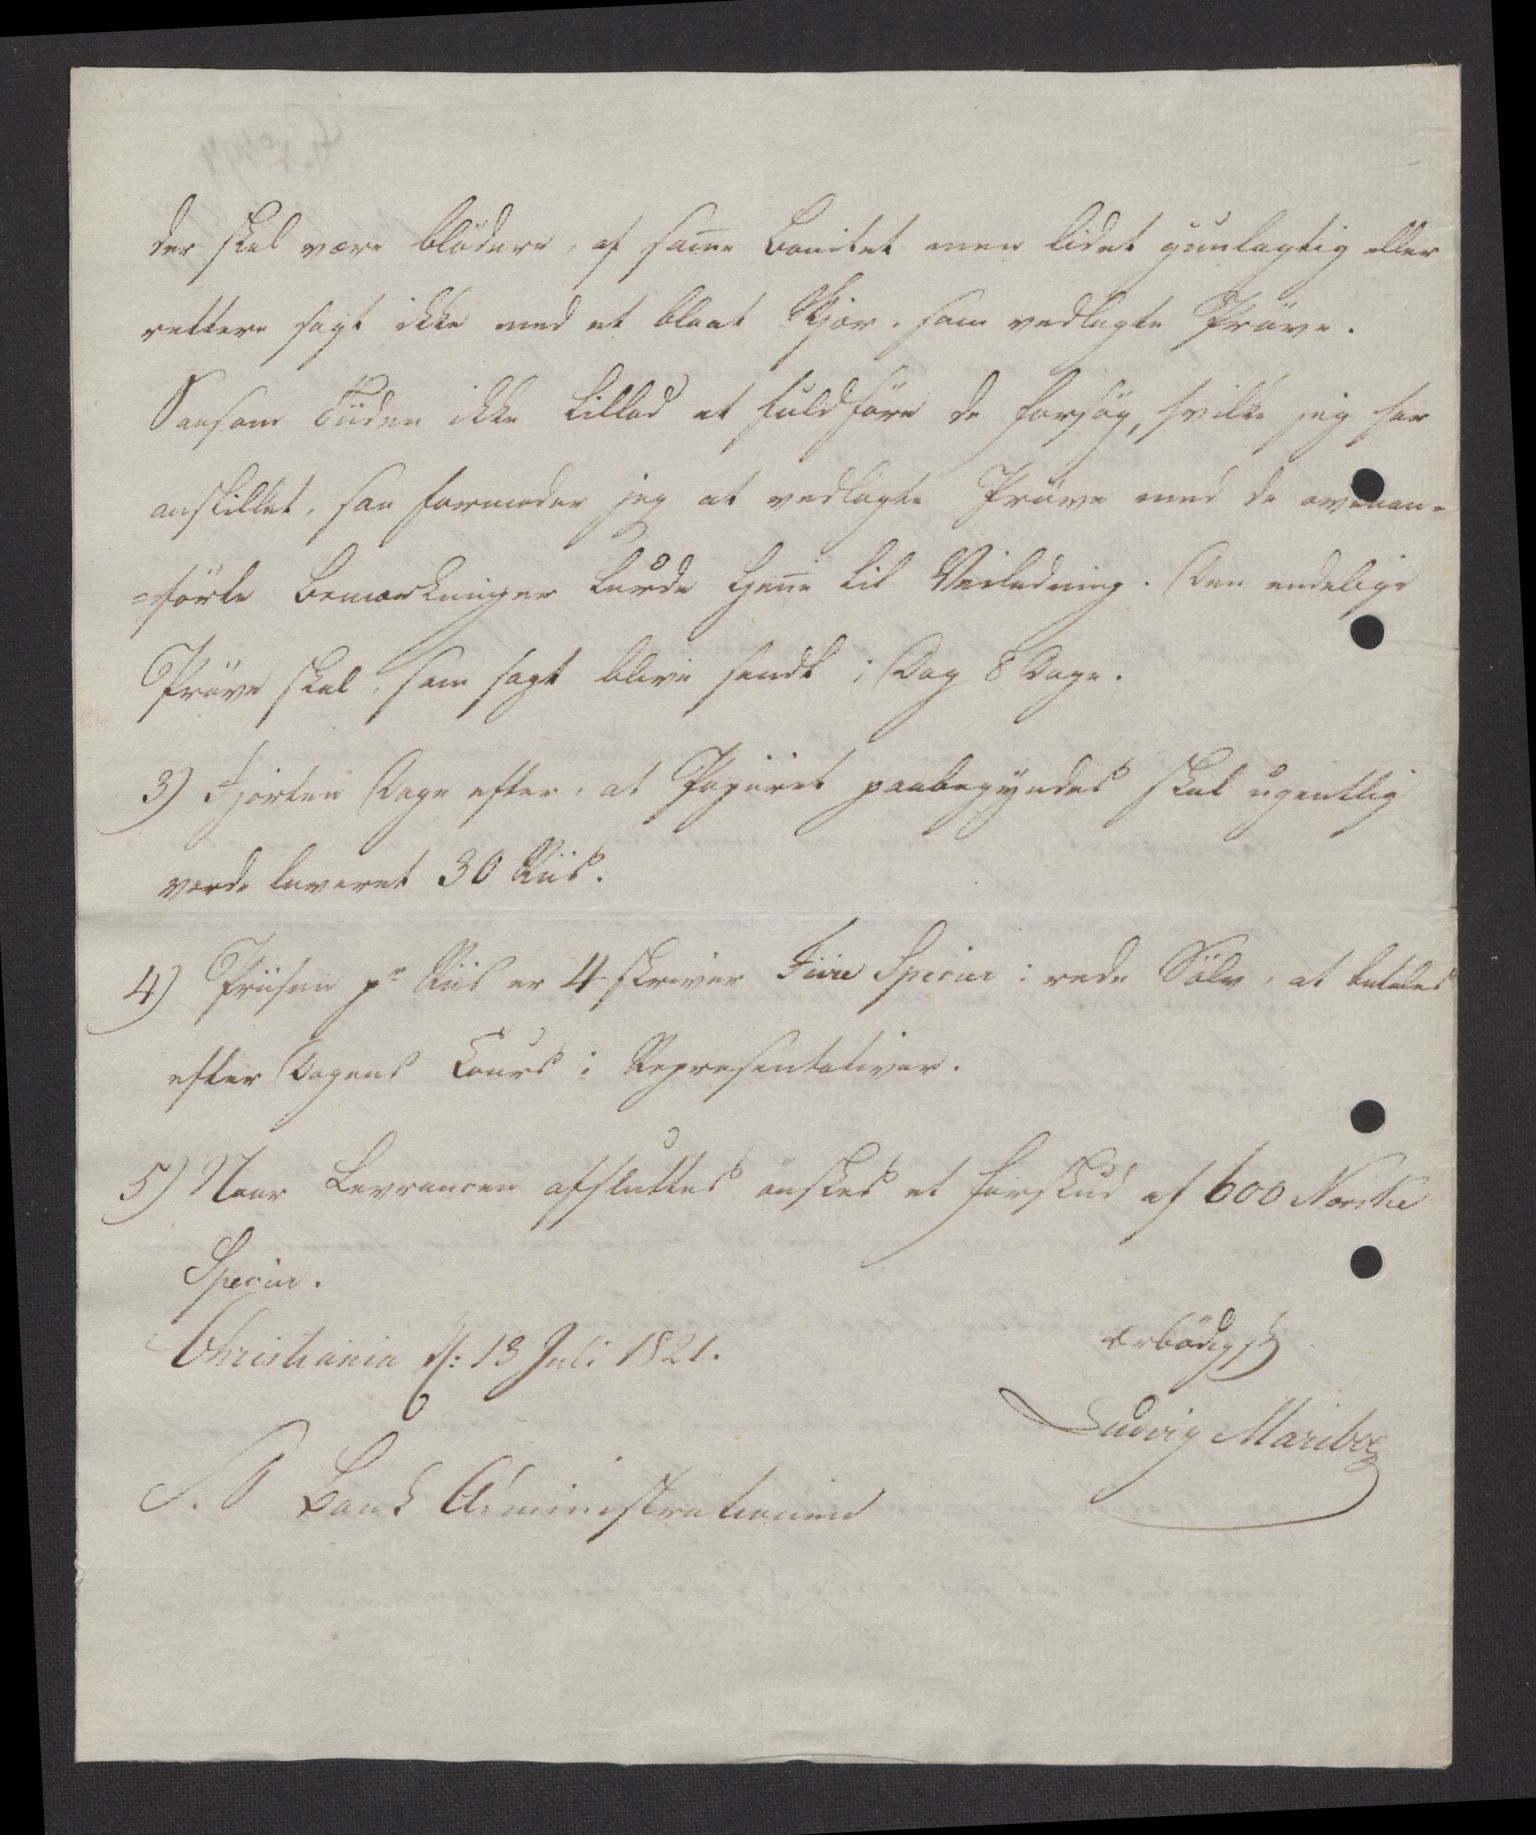 der skal være blödere, af sam̄e Bonitet men lidet guulagtig eller
rettere sagt ikke med et blaat Skjær, som vedlagte Pröve.
Saasom Tiiden ikke tillod at fuldföre de Forsög, hvilke jeg har
anstillet, saa formoder jeg at vedlagte Pröve med de ovenan=
=förte Bemærkninger turde tjene til Veiledning. Den endelige
Pröve skal, som sagt blive sendt i Dag 8 Dage.
3) Fjorten Dage efter, at Papiiret paabegyndes skal ugentlig
vorde leveret 30 Riis.
4) Priisen pr Riis er 4 skriver Fiire Species i rede Sölv, at betales
efter Dagens Cours i Representativer.
5) Naar Levrancen afsluttes önskes et Forskud af 600 Norske
Species.
Christiania d: 13 Juli 1821.
ærbödigst
Ludvig Mariboe
S. T. Bank Administrationen